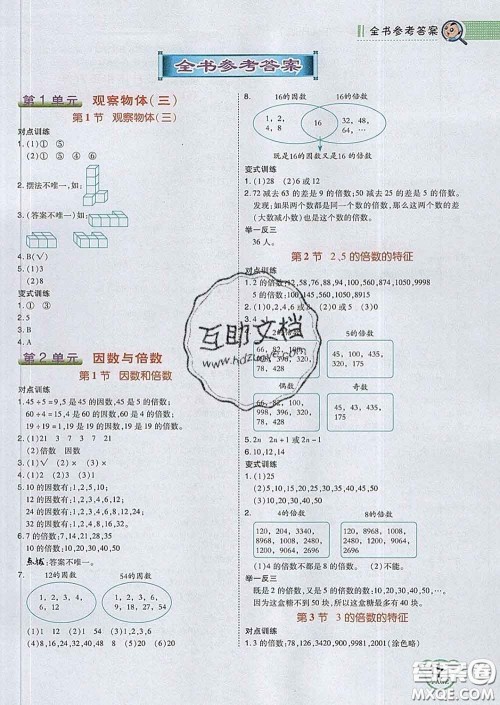 全书参考答案
全书参考答案
第1单元 观察物体(三)
第1节 观察物体(三)
对点训练
1.(1)① ⑤
(2)① ④ ⑤
2.摆法不唯一,如:
3.(答案不唯一)如:
4.B(√)
5.(1)3
(2)8
变式训练
1.① ③
2.5
3.B
4.A
第2单元 因数与倍数
第1节 因数和倍数
对点训练
1.45÷5=9,5是45的因数,45是5的倍数。
60÷4=15,4是60的因数,60是4的倍数。
19÷19=1,19是19的因数,19是19的倍数。
2.(1)21 3 7 3 7 21
(2)倍数 因数
4.(1)√ (2)× (3)×
5.10的因数有:1,2,5,10。
12的因数有:1,2,3,4,6,12。
24的因数有:1,2,3,4,6,8,12,24。
32的因数有:1,2,4,8,16,32。
6.7的倍数有:7,14,21,28,35。
10的倍数有:10,20,30,40,50。
点拨:答案不唯一。
7.
12的因数 54的因数
1,2,3,4,
6,12
1,2,3,6,9,
18,27,54
(1)1,2,3,4,6,12 (2)54 (3)1,2,3,6
(4)8,16,24,32,40,48 (5)10,20,30,40,50
8.
16的因数 16的倍数
1,2,
4,8
16
32,48,
64,…
既是16的因数又是16的倍数
变式训练
1.(1)28 (2)6或12
2.72减去63的差是9的倍数;50减去25的差是5的倍数。
发现:如果两个数都是同一个数的倍数,那么这两个数的差
(大数减小数)也是这个数的倍数。
举一反三
36人。
第2节 2、5的倍数的特征
对点训练
1.2的倍数有:12,58,76,88,94,100,560,874,1050,9998
5的倍数有:35,45,100,145,560,1050,8965
3.(1)3
4.
5的倍数
45,100,435,
345,321
66,82,100,
998,396,320,
78,428
偶数 奇数
66,82,100,
998,396,320,
78,428
45,435,345,
321
5.2n 2n+1或2n-1
6.10,12,14
变式训练
1.(1)25
(2)10,15,20,25,30,35,40,45,50
2.
4的倍数 8的倍数
120,204,3340,
8968,1008,2480,
1200,1280,6992,
3336
120,8968,1008,
2480,1200,1280,
6992,3336
(1)4的倍数不一定是8的倍数。 (2)不能。
举一反三
既是2的倍数,又是5的倍数的数,其个位上的数一定是0。
因为这盒糖不到50块,所以这盒糖最多有40块。
第3节 3的倍数的特征
对点训练
1.3的倍数:78,126,3420,900,9981,2001(涂色略)
互助文档
www.hdzuoye.com
答案圈
MXQE.COM